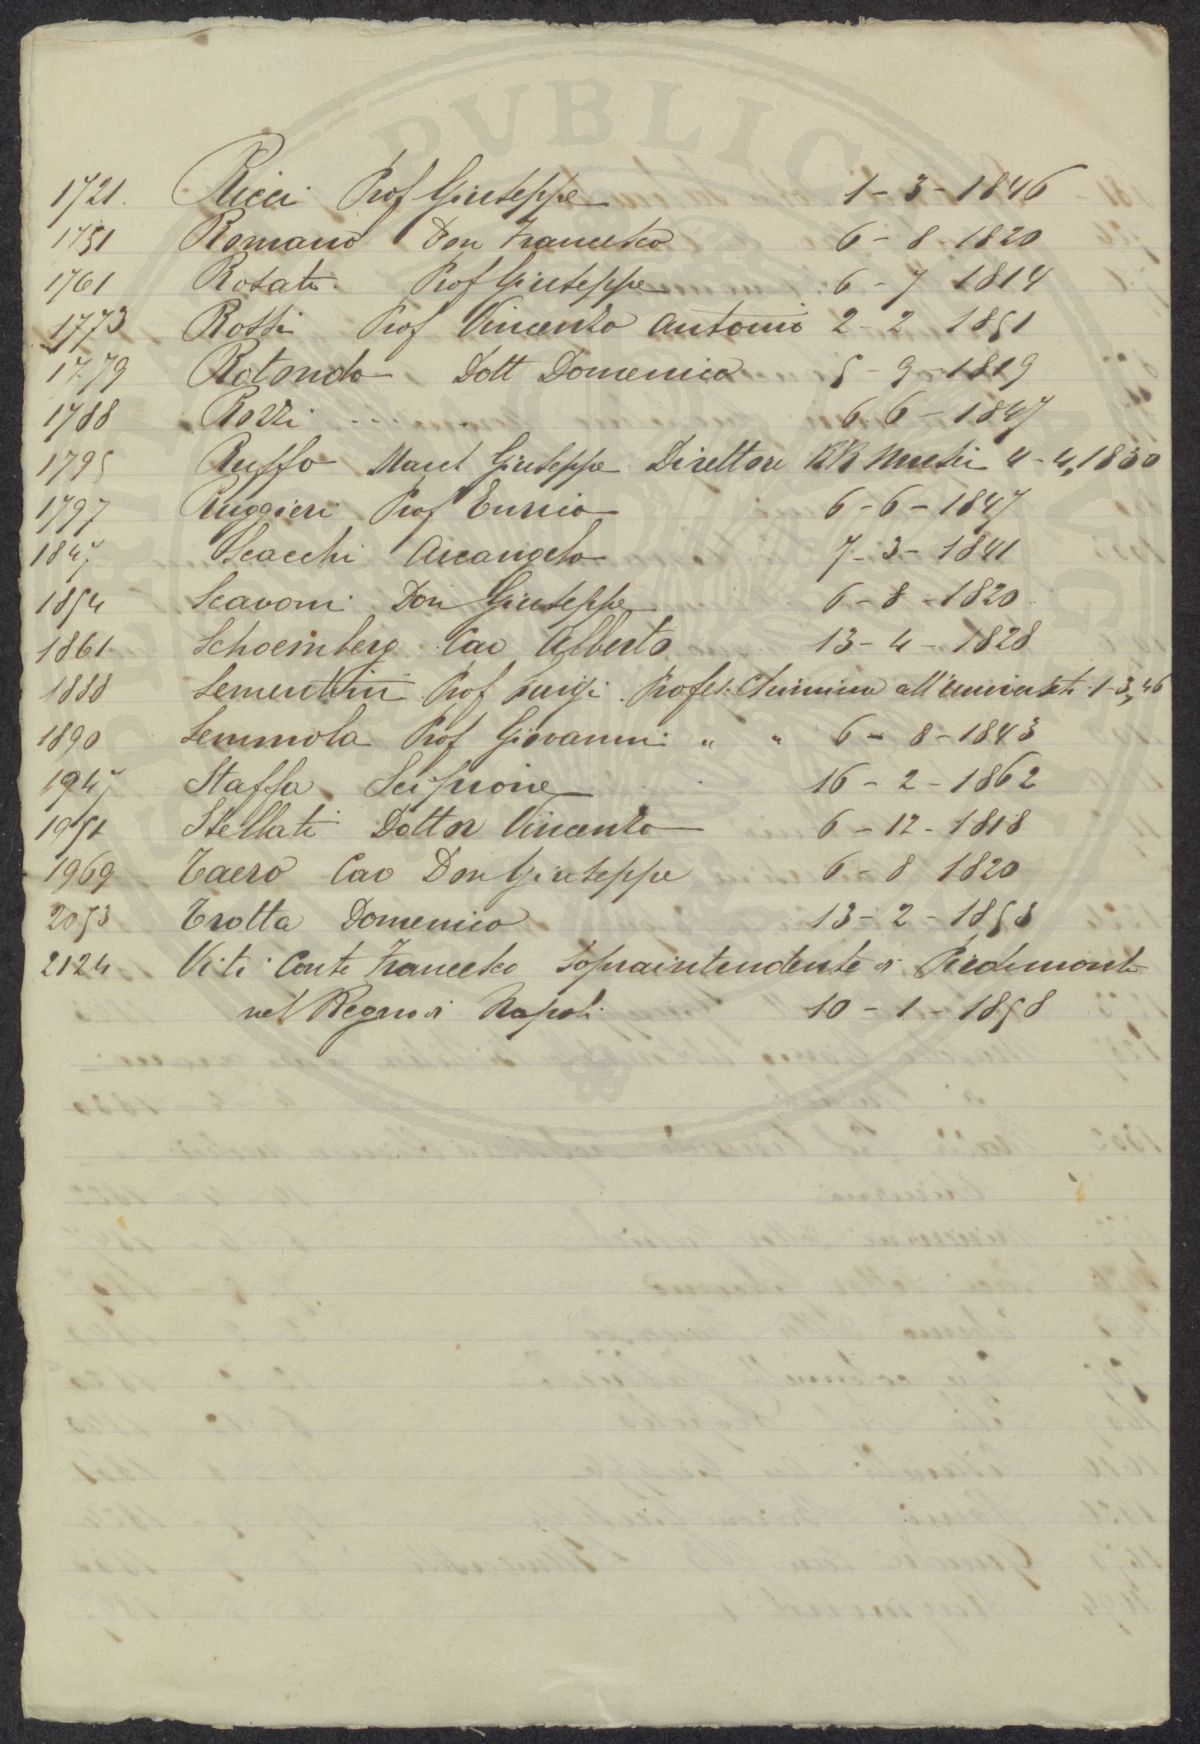 1721. Ricci Prof Giuseppe 1-3-1846
1751 Romano Don Francesco 6-8-1820
1761 Rosati Prof Giuseppe 6-7 1814
1773 Rossi Prof Vincenzo Antonio 2-2-1851
1779 Rotondo Dott Domenico 5-9-1819
1788 Rozzi .... 6 6-1847
1795 Ruffo March Giuseppe Direttore RR Musei 4-4,1830
1797 Ruggieri Prof Ennio 6-6-1847
1847 Scacchi Arcangelo 7-3-1841
1854 Scavoni Don Giuseppe 6-8-1820
1861 Schoemberg Cav Alberto 13-4-1828
1888 Sementini Prof Luigi Profes. Chimica all' 1-3,46
1890 Semmola Prof Giovanni " " 6-8-1843
1947 Staffa Scipione 16-2-1862
1951 Stellati Dottor Vincenzo 6-12-1818
1969 Taero Cav Don Giuseppe 6-8 1820
2053 Trotta Domenico 13-2-1853
2124 Viti Conte Francesco Sopraintendente di Piedimonte
nel Regno di Napoli 10-1-1858
PVBLIC